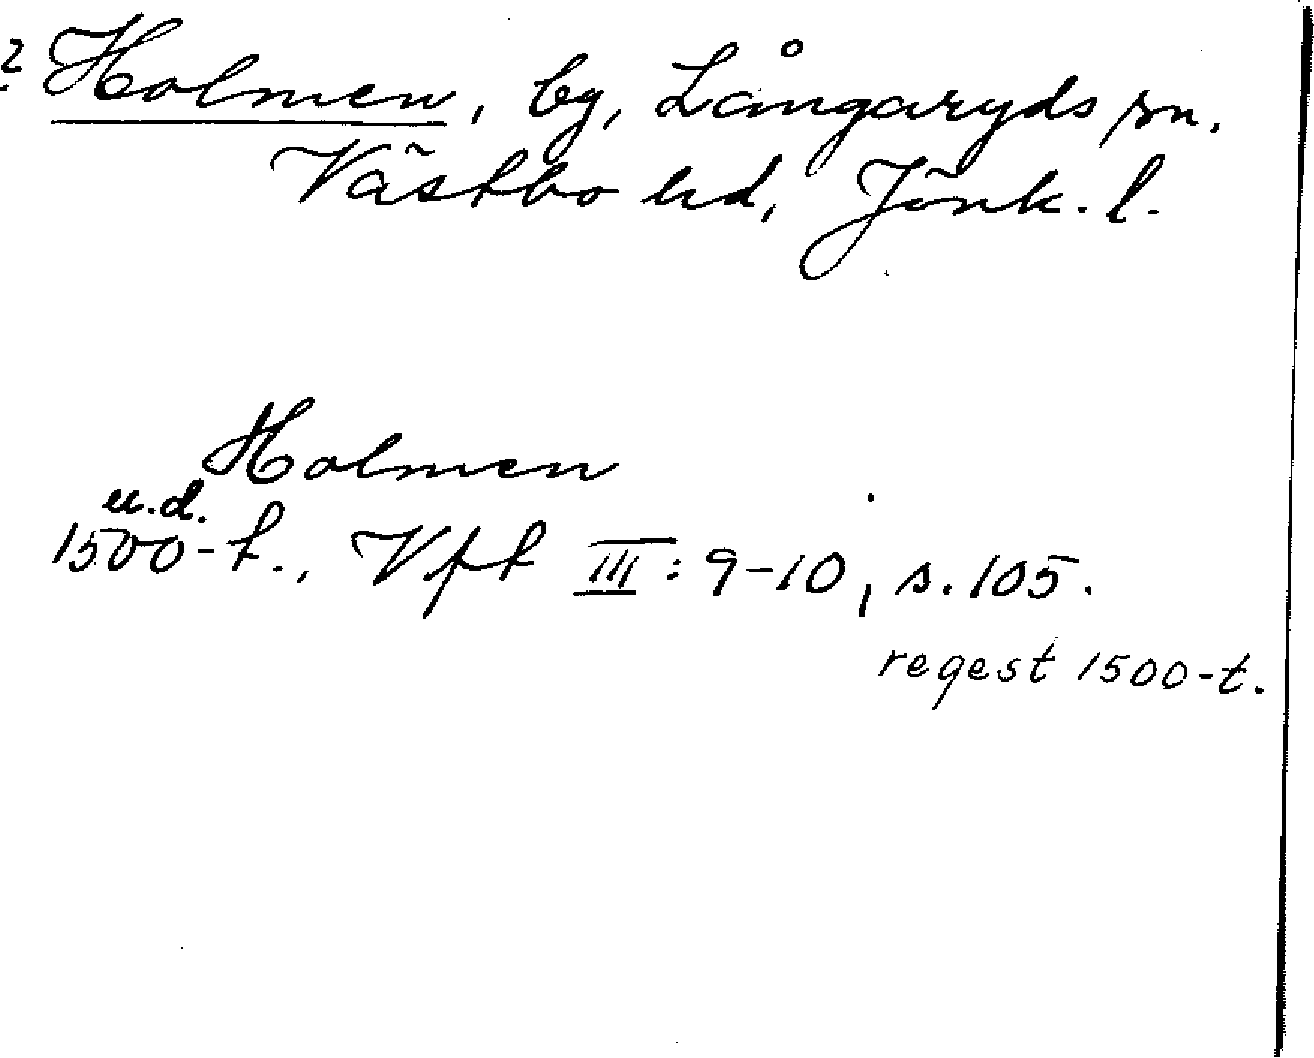 ? Holmen, by, Långaryds sn.
Västbo hd, Jönk. l.
Holmen
u.d.
1500-t., Vft III: 9-10, s. 105.
regest 1500-t.